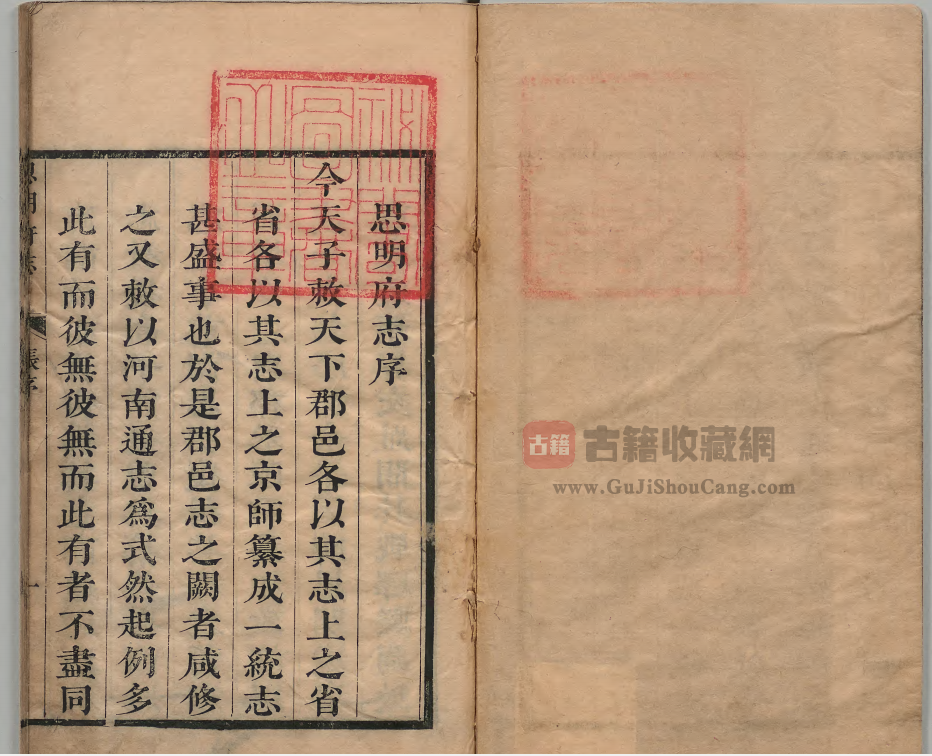 思明府志序
今天子敕天下郡邑各以其志上之省
省各以其志上之京師纂成一統志
甚盛事也於是郡邑志之闕者咸修
之又敕以河南通志爲式然起例多
此有而彼無彼無而此有者不盡同
思明府志 張序 一
古籍
古籍收藏網
www.GuJiShouCang.com